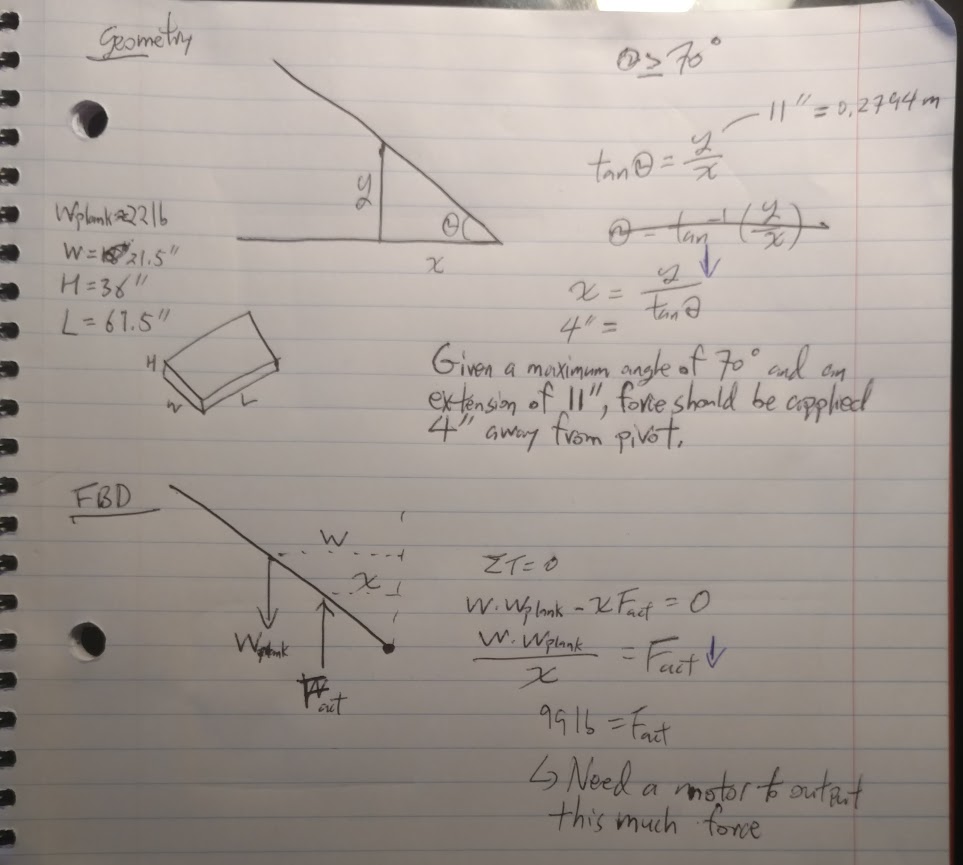 Geometry
θ ≥ 70°
11" = 0.2794 m
tanθ = y/x
y
θ
x
Wplank≈22lb
W = 21.5"
H = 36"
L = 67.5"
H
W
L
θ = tan⁻¹(y/x)
x = y/tanθ
4" =
Given a maximum angle of 70° and an
extension of 11", force should be applied
4" away from pivot.
FBD
W
x
Wplank
Fact
ΣT = 0
W·Wplank - xFact = 0
W·Wplank/x = Fact
99lb = Fact
↳ Need a motor to output
this much force